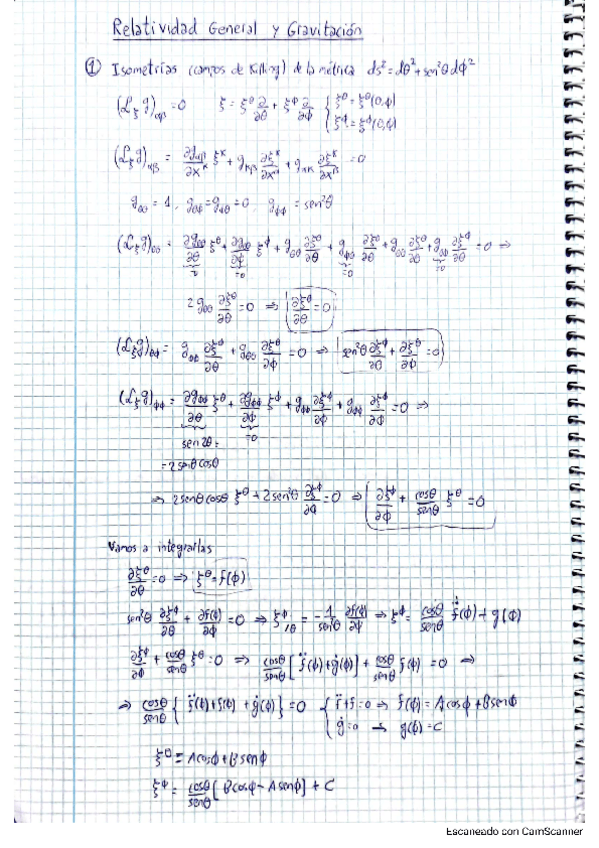 Relatividad General y Gravitación
① Isometrías (campos de Killing) de la métrica ds² = dθ² + sen²θ dϕ²
(ℒ_ξ g)_αβ = 0   ξ = ξ^θ ∂/∂θ + ξ^ϕ ∂/∂ϕ { ξ^θ = ξ^θ(θ,ϕ)
ξ^ϕ = ξ^ϕ(θ,ϕ)
(ℒ_ξ g)_αβ = ∂g_αβ/∂x^κ ξ^κ + g_κβ ∂ξ^κ/∂x^α + g_ακ ∂ξ^κ/∂x^β = 0
g_θθ = 1, g_θϕ = g_ϕθ = 0, g_ϕϕ = sen²θ
(ℒ_ξ g)_θθ = ∂g_θθ/∂θ ξ^θ + ∂g_θθ/∂ϕ ξ^ϕ + g_θθ ∂ξ^θ/∂θ + g_ϕθ ∂ξ^ϕ/∂θ + g_θθ ∂ξ^θ/∂θ + g_θϕ ∂ξ^ϕ/∂θ = 0 ⇒
=0 =0 =0 =0
2 g_θθ ∂ξ^θ/∂θ = 0 ⇒ ∂ξ^θ/∂θ = 0
(ℒ_ξ g)_θϕ = g_ϕϕ ∂ξ^ϕ/∂θ + g_θθ ∂ξ^θ/∂ϕ = 0 ⇒ sen²θ ∂ξ^ϕ/∂θ + ∂ξ^θ/∂ϕ = 0
(ℒ_ξ g)_ϕϕ = ∂g_ϕϕ/∂θ ξ^θ + ∂g_ϕϕ/∂ϕ ξ^ϕ + g_ϕϕ ∂ξ^ϕ/∂ϕ + g_ϕϕ ∂ξ^ϕ/∂ϕ = 0 ⇒
sen2θ = =0
= 2senθcosθ
⇒ 2senθcosθ ξ^θ + 2sen²θ ∂ξ^ϕ/∂ϕ = 0 ⇒ ∂ξ^ϕ/∂ϕ + cosθ/senθ ξ^θ = 0
Vamos a integrarlas
∂ξ^θ/∂θ = 0 ⇒ ξ^θ = f(ϕ)
sen²θ ∂ξ^ϕ/∂θ + ∂f(ϕ)/∂ϕ = 0 ⇒ ξ^ϕ_,θ = -1/sen²θ ∂f(ϕ)/∂ϕ ⇒ ξ^ϕ = cosθ/senθ ḟ(ϕ) + g(ϕ)
∂ξ^ϕ/∂ϕ + cosθ/senθ ξ^θ = 0 ⇒ cosθ/senθ [ f̈(ϕ) + ġ(ϕ) ] + cosθ/senθ f(ϕ) = 0 ⇒
⇒ cosθ/senθ { f̈(ϕ) + f(ϕ) + ġ(ϕ) } = 0 { f̈ + f = 0 ⇒ f(ϕ) = A cosϕ + B senϕ
ġ = 0 ⇒ g(ϕ) = C
ξ^θ = A cosϕ + B senϕ
ξ^ϕ = cosθ/senθ [ B cosϕ - A senϕ ] + C
Escaneado con CamScanner